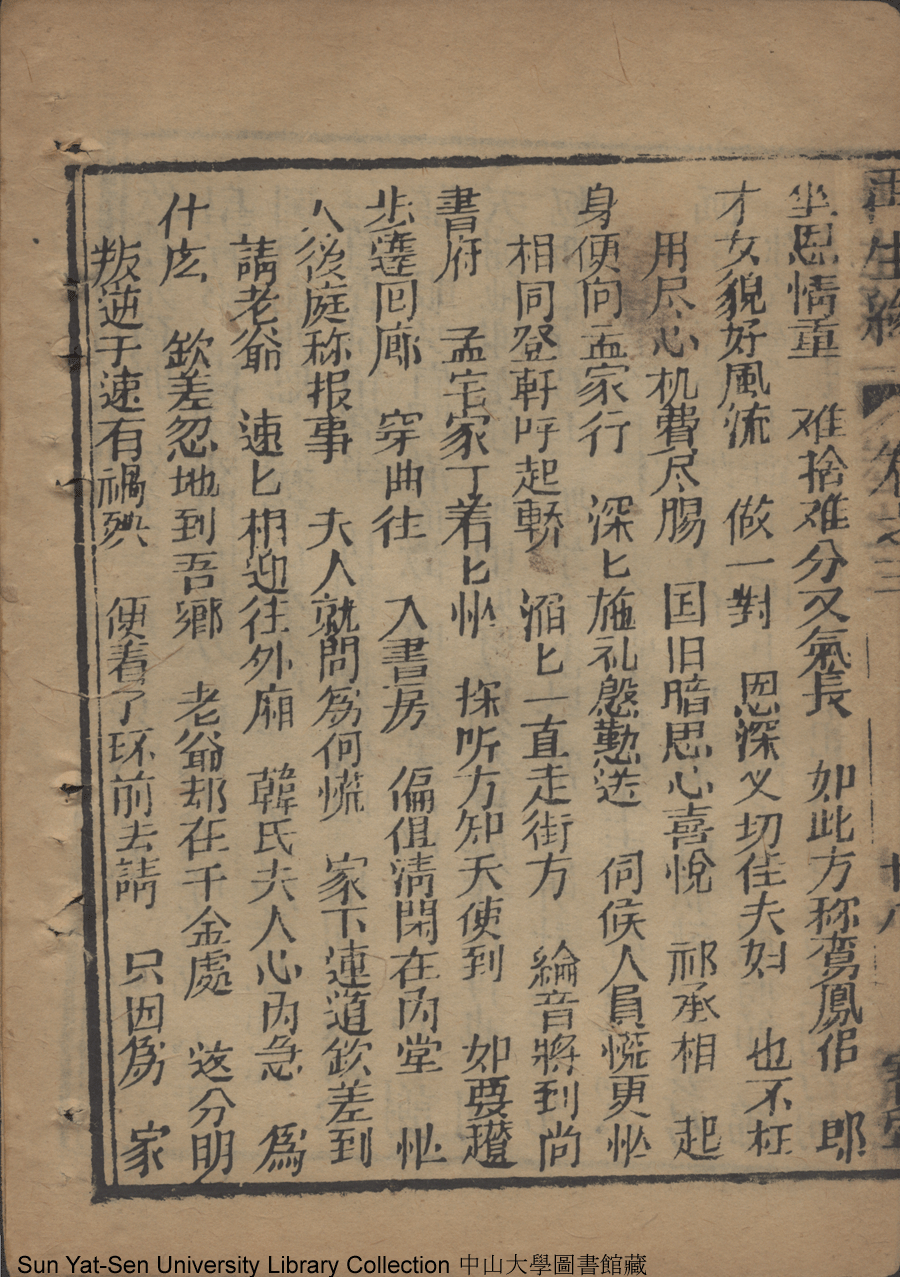 再生緣 卷之三 十八
坐恩情重 难捨难分又氣長 如此方称鸞鳳侣 郎
才女貌好風流 做一對 恩深义切佳夫妇 也不枉
用尽心机費尽腸 国旧暗思心喜悅 祁承相 起
身便向孟家行 深匕施礼慇懃送 伺候人員慌更忙
相同登軒呼起轎 滔匕一直走街方 綸音將到尚
書府 孟宅家丁着匕忙 探听方知天使到 如要蹬
步遶回廊 穿曲往 入書房 偏值清閑在內堂 忙
入後庭称报事 夫人就問為何慌 家下連道欽差到
請老爺 速匕相迎往外廂 韓氏夫人心內急 為
什庅 欽差忽地到吾鄉 老爺却在千金處 这分明
叛逆于速有禍殃 便着了环前去請 只因為 家
Sun Yat-Sen University Library Collection 中山大學圖書館藏